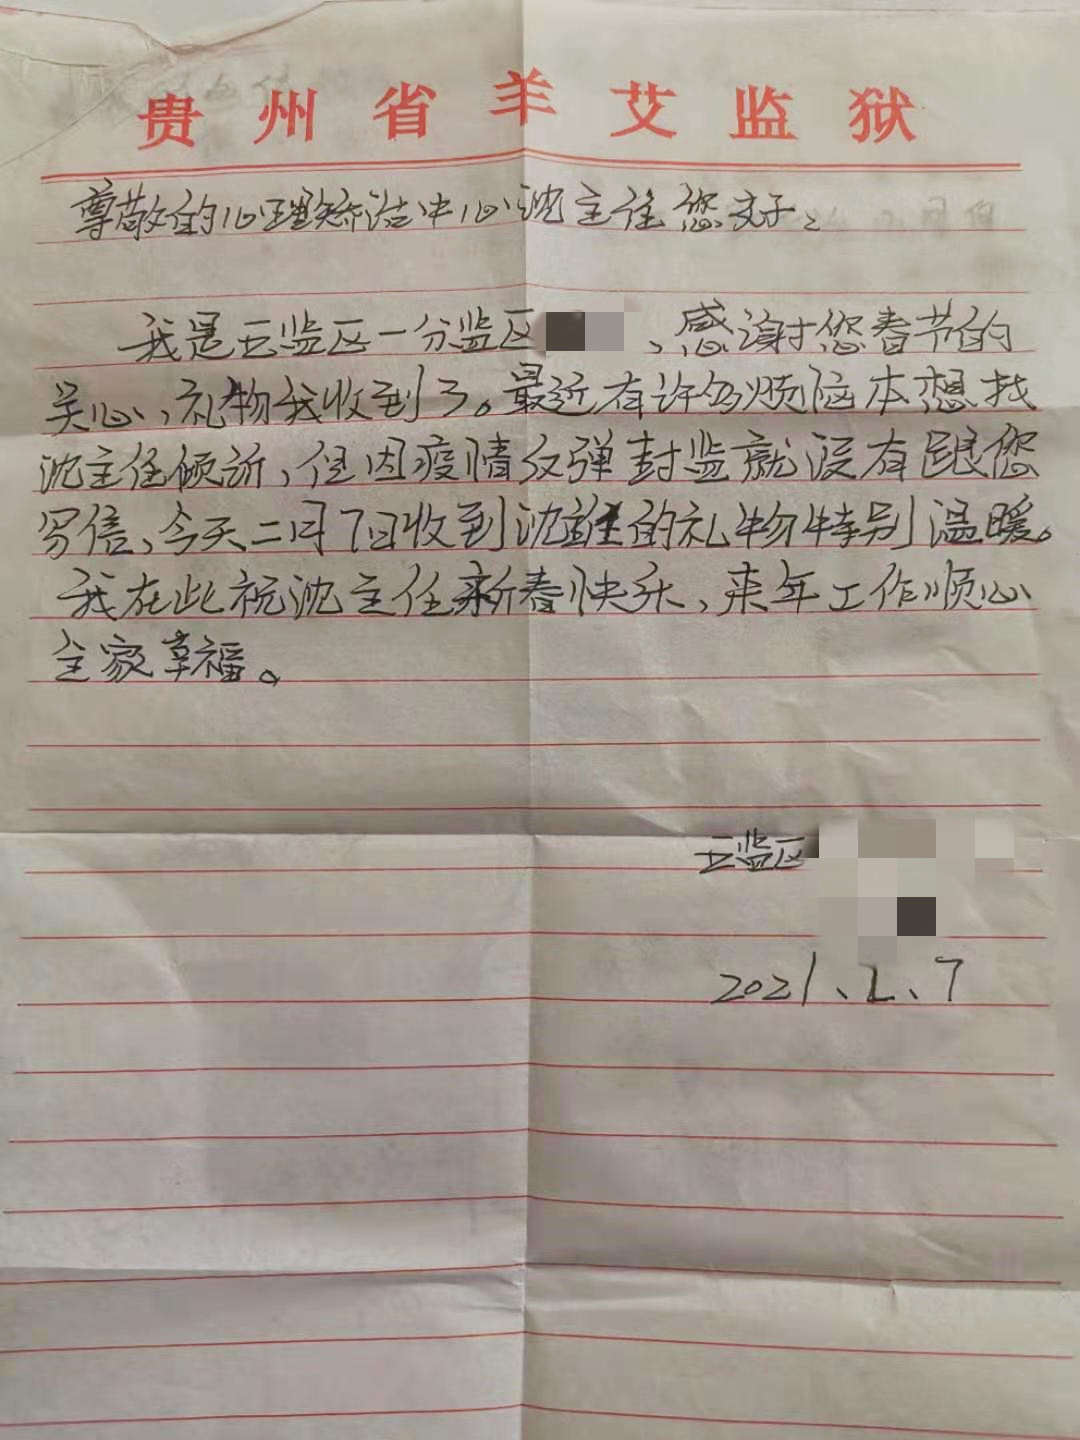 贵州省羊艾监狱
尊敬的心理矫治中心沈主任您好、
我是五监区一分监区，感谢您春节的
关心，礼物我收到了。最近有许多烦恼本想找
沈主任倾诉，但因疫情反弹封监就没有跟您
写信、今天二月7日收到沈主任的礼物特别温暖。
我在此祝沈主任新春快乐、来年工作顺心
全家幸福。
五监区
2021、2、7